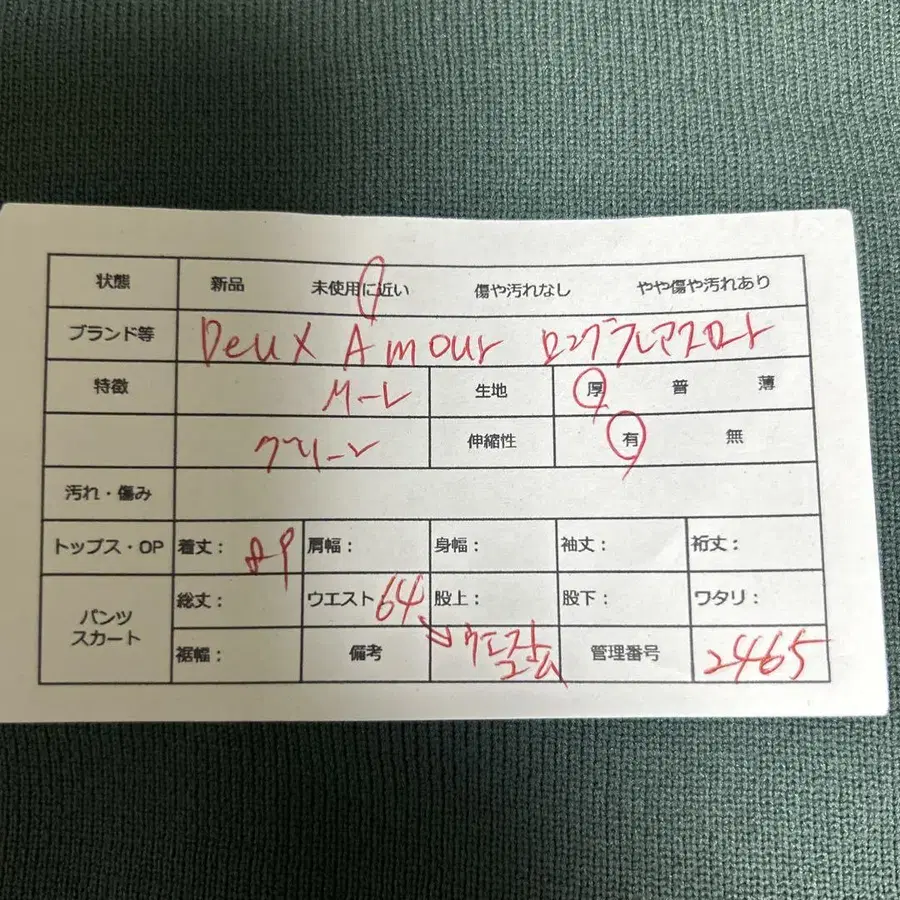 状態 新品 未使用に近い 傷や汚れなし やや傷や汚れあり
ブランド等 Deux Amour ロングフレアスカート
特徴 生地 厚 普 薄
グリーン 伸縮性 有 無
汚れ・傷み
トップス・OP 着丈: 肩幅: 身幅: 袖丈: 裄丈:
パンツ スカート 総丈: ウエスト 64 股上: 股下: ワタリ:
裾幅: 備考 管理番号 2465